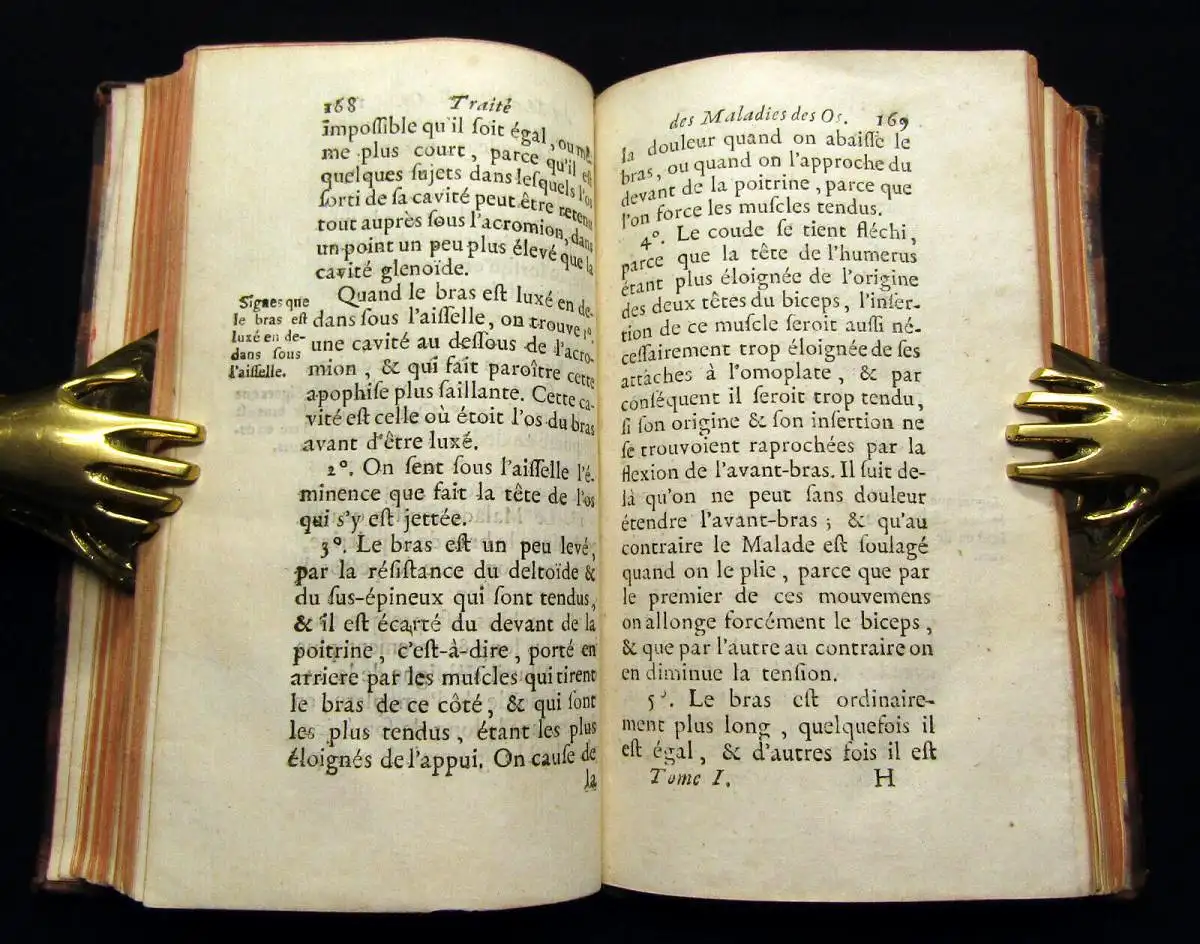 168 Traité
impoſſible qu'il ſoit égal, ou mê-
me plus court, parce qu'il eſt
quelques ſujets dans leſquels l'os
ſorti de ſa cavité peut être retenu
tout auprès ſous l'acromion, dans
un point un peu plus élevé que la
cavité glenoïde.
Signes que
le bras eſt
luxé en de-
dans ſous
l'aiſſelle.
Quand le bras eſt luxé en de-
dans ſous l'aiſſelle, on trouve 1°.
une cavité au deſſous de l'acro-
mion, & qui fait paroître cette
apophiſe plus ſaillante. Cette ca-
vité eſt celle où étoit l'os du bras
avant d'être luxé.
2°. On ſent ſous l'aiſſelle l'é-
minence que fait la tête de l'os
qui s'y eſt jettée.
3°. Le bras eſt un peu levé,
par la réſiſtance du deltoïde &
du ſus-épineux qui ſont tendus,
& il eſt écarté du devant de la
poitrine, c'eſt-à-dire, porté en
arriere par les muſcles qui tirent
le bras de ce côté, & qui ſont
les plus tendus, étant les plus
éloignés de l'appui. On cauſe de
la
des Maladies des Os. 169
la douleur quand on abaiſſe le
bras, ou quand on l'approche du
devant de la poitrine, parce que
l'on force les muſcles tendus.
4°. Le coude ſe tient fléchi,
parce que la tête de l'humerus
étant plus éloignée de l'origine
des deux têtes du biceps, l'inſer-
tion de ce muſcle ſeroit auſſi né-
ceſſairement trop éloignée de ſes
attaches à l'omoplate, & par
conſéquent il ſeroit trop tendu,
ſi ſon origine & ſon inſertion ne
ſe trouvoient raprochées par la
flexion de l'avant-bras. Il ſuit de-
là qu'on ne peut ſans douleur
étendre l'avant-bras; & qu'au
contraire le Malade eſt ſoulagé
quand on le plie, parce que par
le premier de ces mouvemens
on allonge forcément le biceps,
& que par l'autre au contraire on
en diminue la tenſion.
5°. Le bras eſt ordinaire-
ment plus long, quelquefois il
eſt égal, & d'autres fois il eſt
Tome I. H